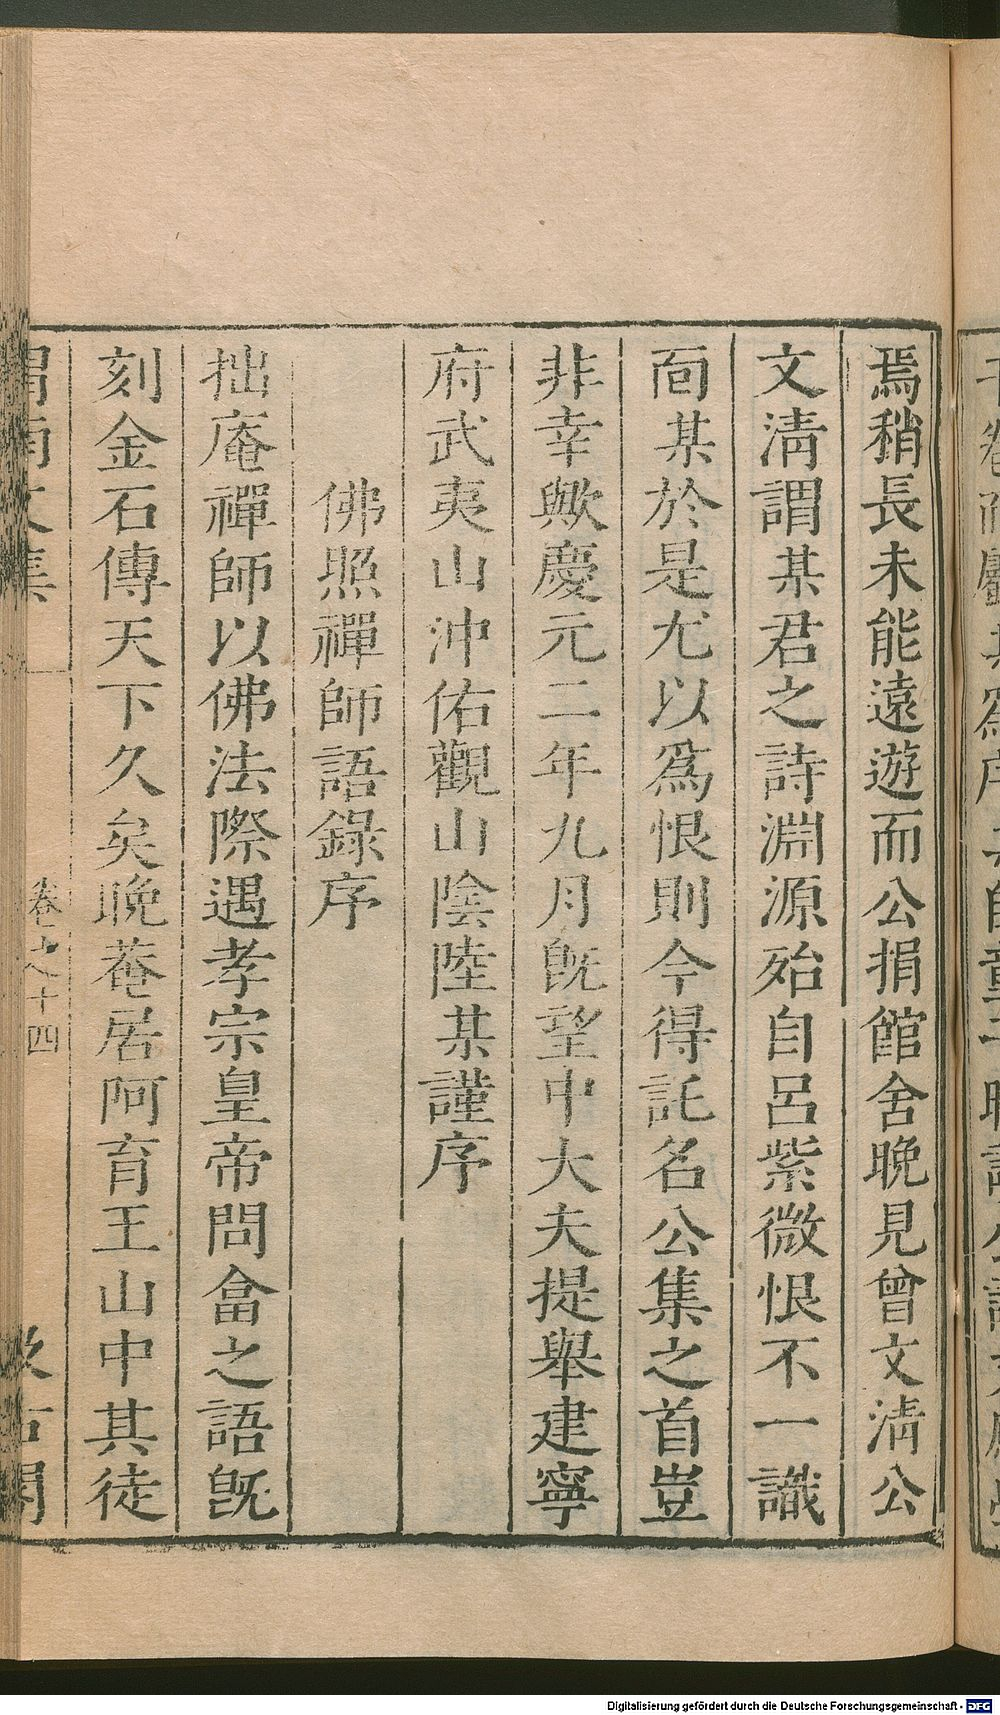 焉稍長未能遠遊而公捐館舍晚見曾文淸公
文淸謂某君之詩淵源殆自呂紫微恨不一識
面某於是尤以爲恨則今得託名公集之首豈
非幸歟慶元二年九月旣望中大夫提舉建寧
府武夷山沖佑觀山陰陸某謹序
佛照禪師語錄序
拙庵禪師以佛法際遇孝宗皇帝問畣之語旣
刻金石傳天下久矣晚菴居阿育王山中其徒
渭南文集
卷之十四
汲古閣
Digitalisierung gefördert durch die Deutsche Forschungsgemeinschaft - DFG